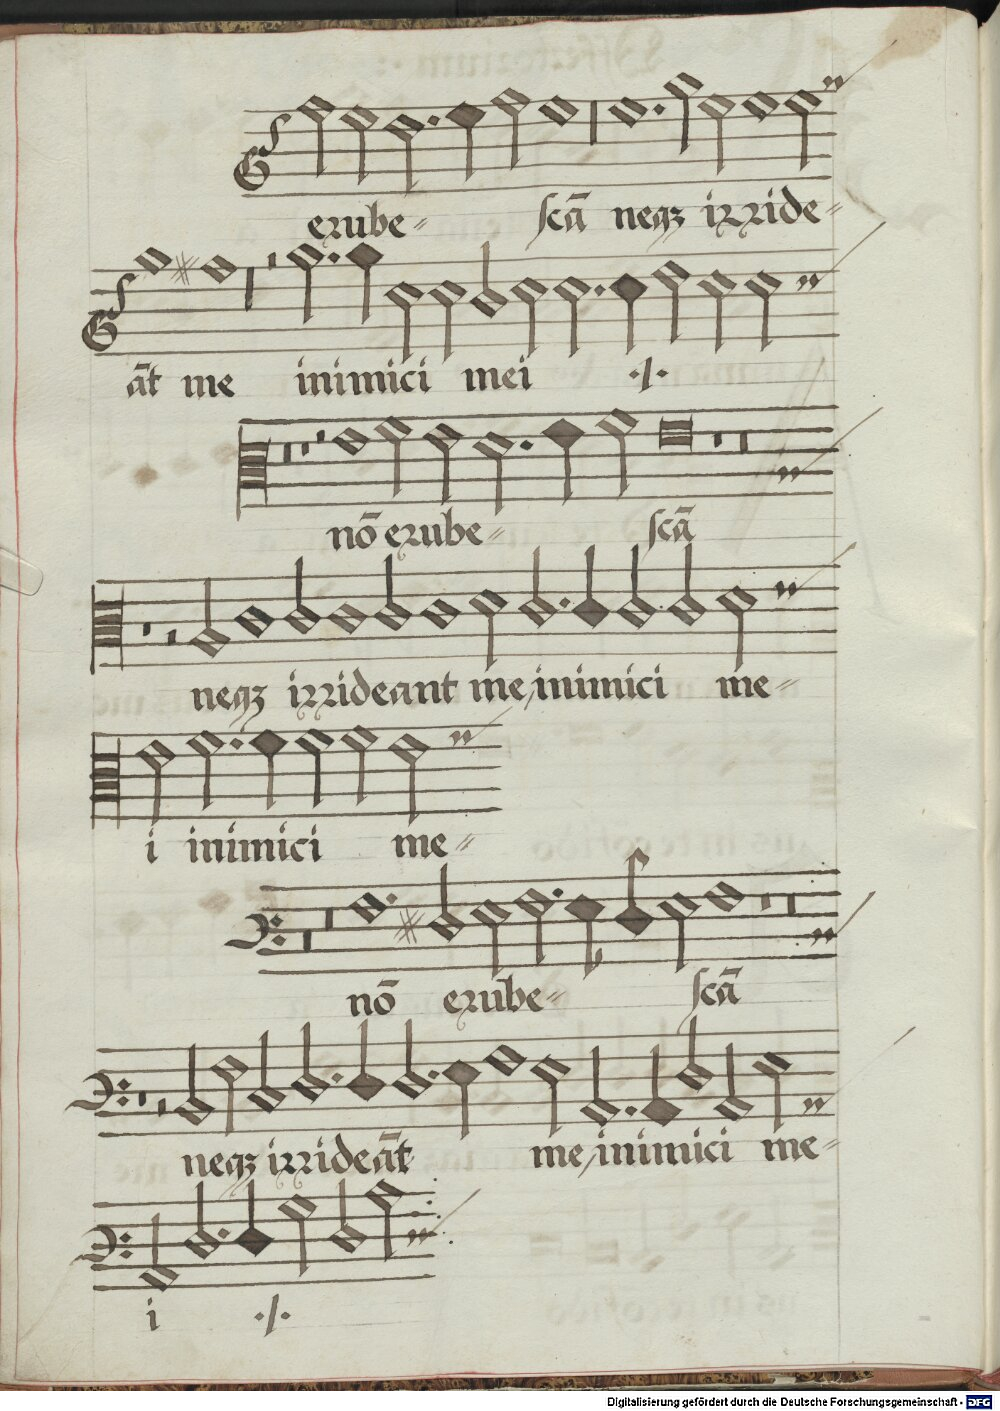 erube- scā neqz irride-
āt me inimici mei ./.
nō erube- scā
neqz irrideant me/inimici me-
i inimici me-
nō erube- scā
neqz irrideāt me/inimici me-
i ./.
Digitalisierung gefördert durch die Deutsche Forschungsgemeinschaft - DFG